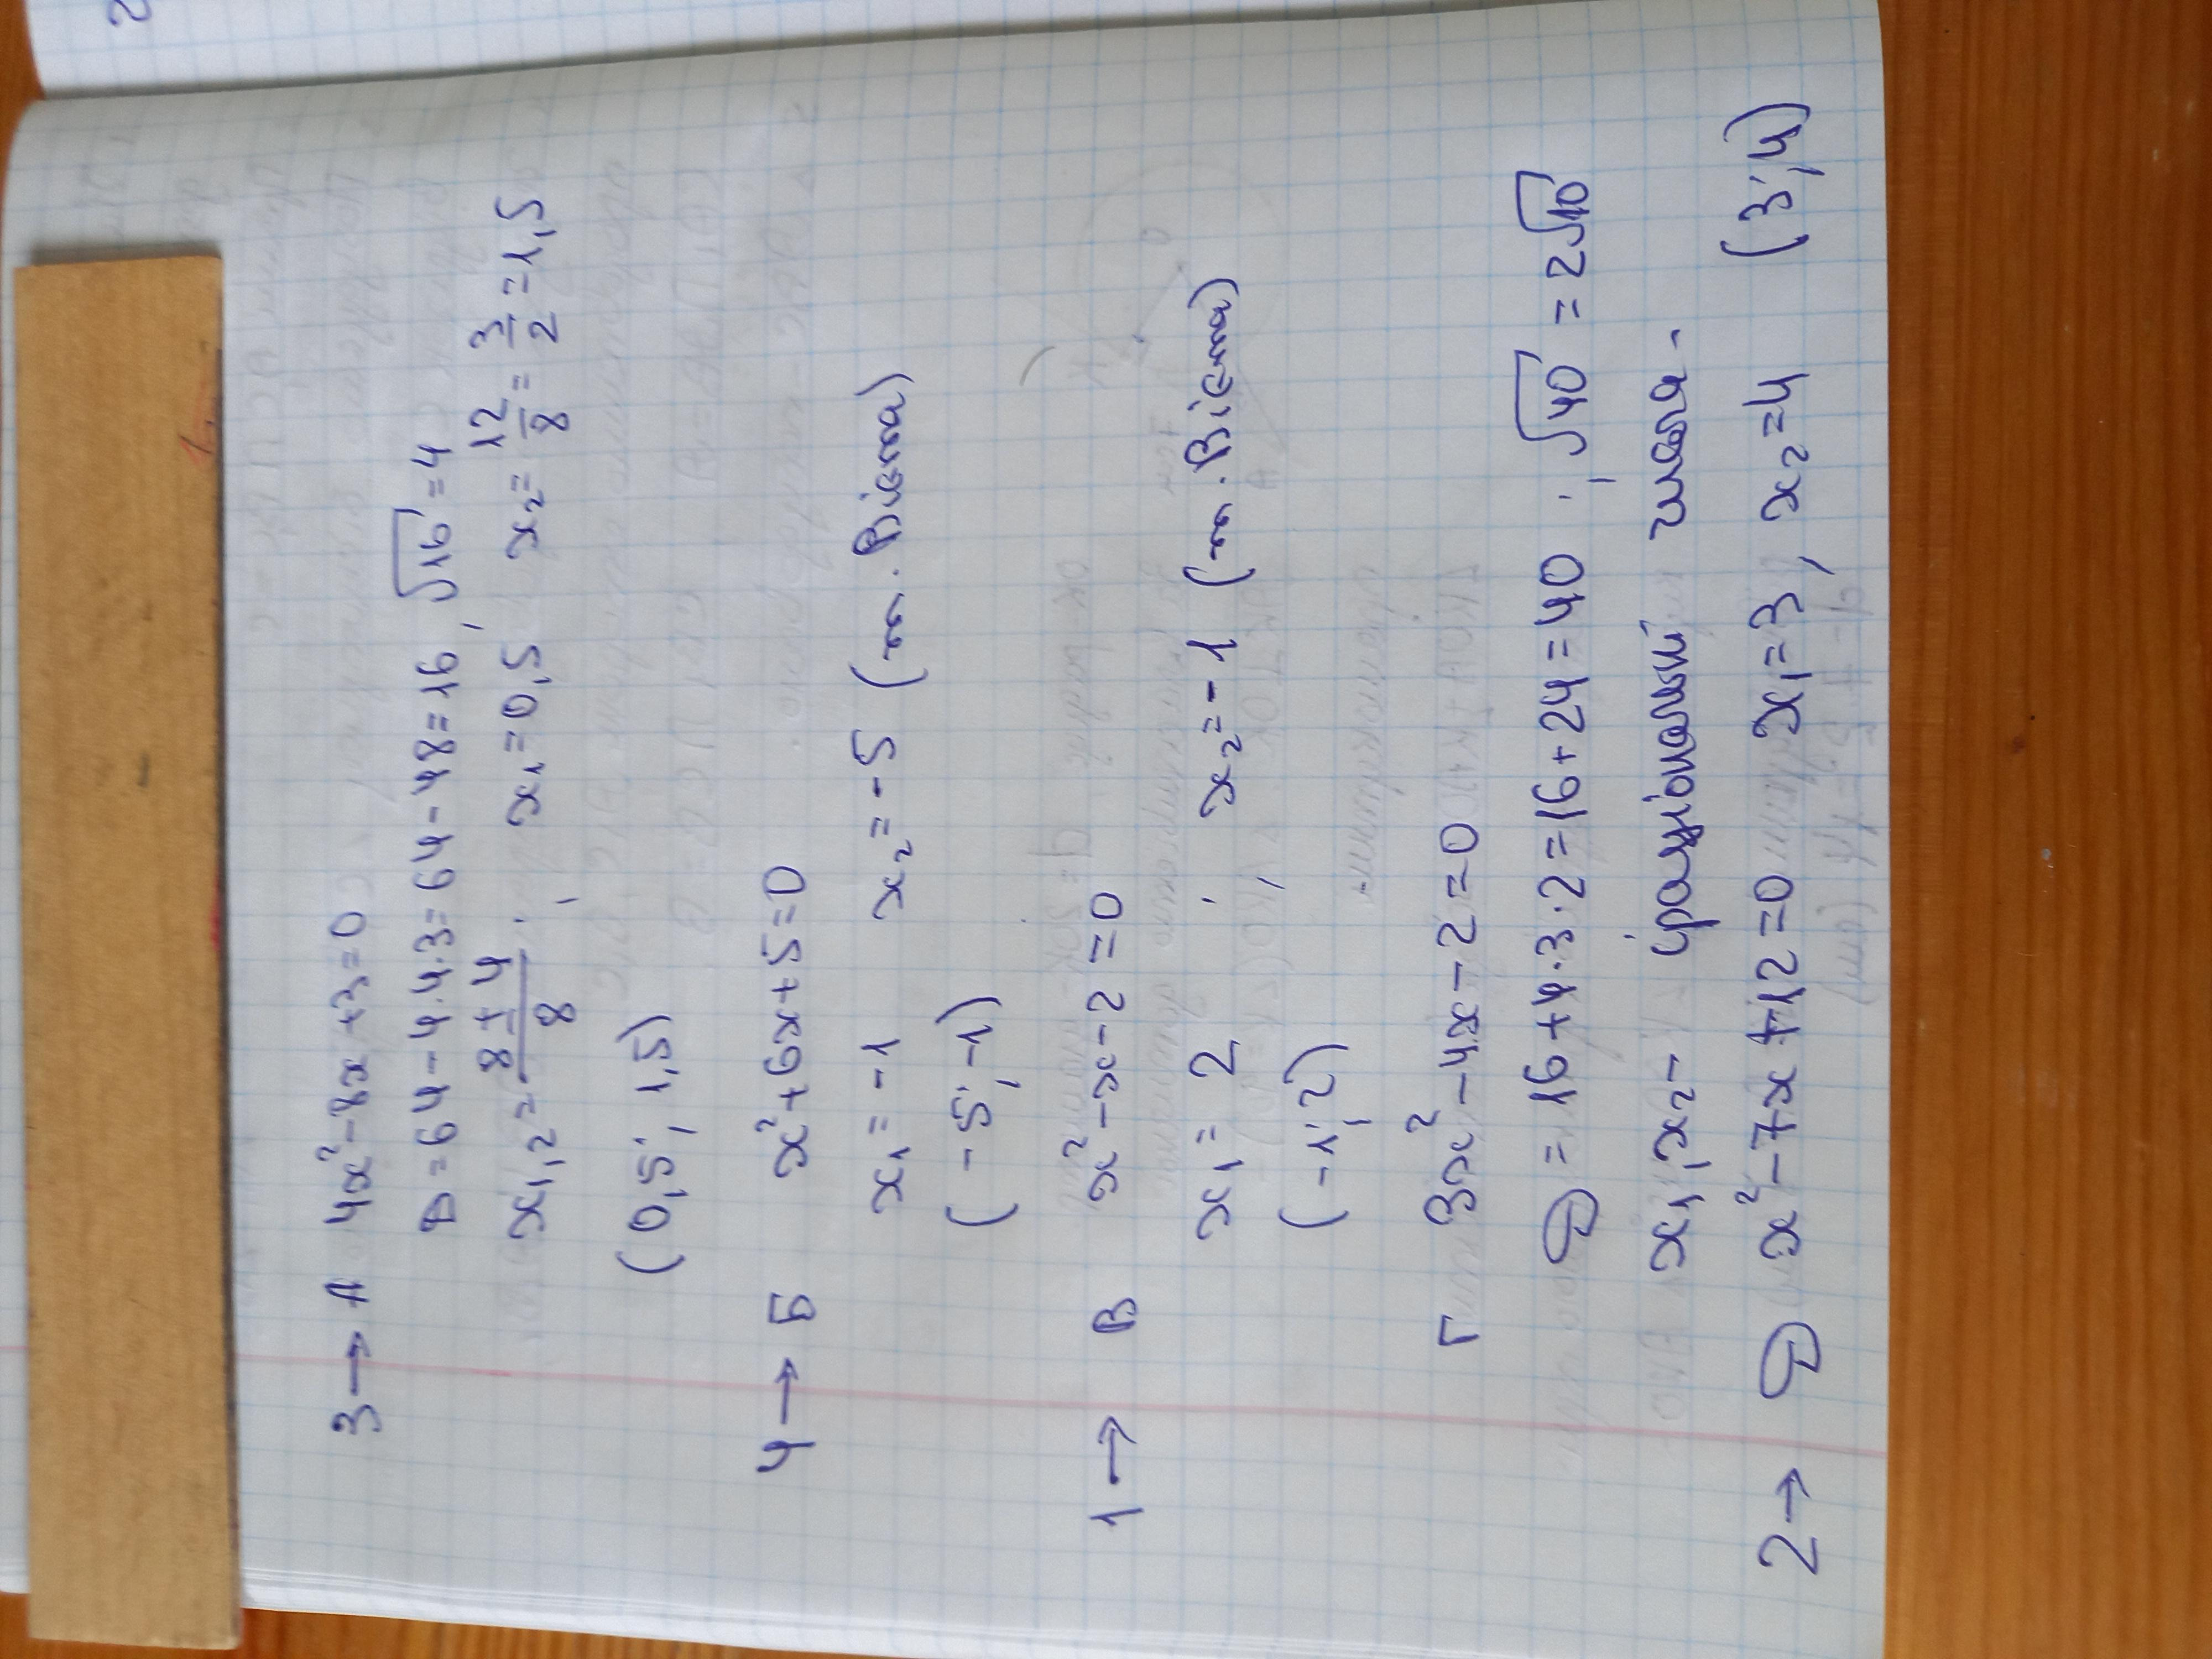 3 → А 4x² - 8x + 3 = 0
D = 64 - 4·4·3 = 64 - 48 = 16, √16 = 4
x₁,₂ = (8 ± 4)/8 ; x₁ = 0,5 x₂ = 12/8 = 3/2 = 1,5
(0,5; 1,5)
4 → Б x² + 6x + 5 = 0
x₁ = -1 x₂ = -5 (т. Вієта)
(-5; -1)
1 → В x² - x - 2 = 0
x₁ = 2 ; x₂ = -1 (т. Вієта)
(-1; 2)
Г 3x² - 4x - 2 = 0
D = 16 + 4·3·2 = 16 + 24 = 40 ; √40 = 2√10
x₁, x₂ - ірраціональні числа -
2 → D x² - 7x + 12 = 0 x₁ = 3, x₂ = 4 (3; 4)